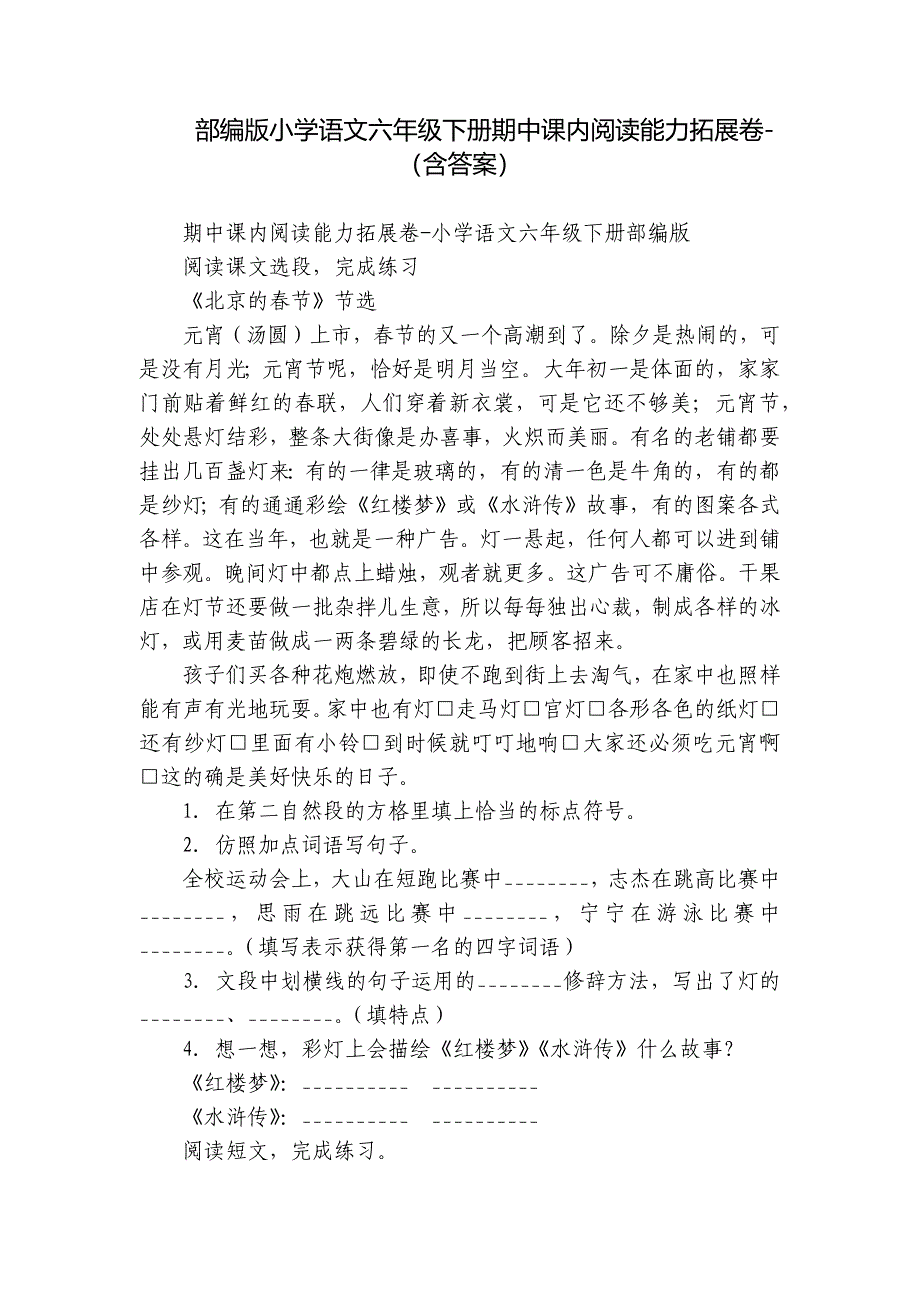 部编版小学语文六年级下册期中课内阅读能力拓展卷-
（含答案）
期中课内阅读能力拓展卷-小学语文六年级下册部编版
阅读课文选段，完成练习
《北京的春节》节选
元宵（汤圆）上市，春节的又一个高潮到了。除夕是热闹的，可
是没有月光；元宵节呢，恰好是明月当空。大年初一是体面的，家家
门前贴着鲜红的春联，人们穿着新衣裳，可是它还不够美；元宵节，
处处悬灯结彩，整条大街像是办喜事，火炽而美丽。有名的老铺都要
挂出几百盏灯来：有的一律是玻璃的，有的清一色是牛角的，有的都
是纱灯；有的通通彩绘《红楼梦》或《水浒传》故事，有的图案各式
各样。这在当年，也就是一种广告。灯一悬起，任何人都可以进到铺
中参观。晚间灯中都点上蜡烛，观者就更多。这广告可不庸俗。干果
店在灯节还要做一批杂拌儿生意，所以每每独出心裁，制成各样的冰
灯，或用麦苗做成一两条碧绿的长龙，把顾客招来。
孩子们买各种花炮燃放，即使不跑到街上去淘气，在家中也照样
能有声有光地玩耍。家中也有灯□走马灯□宫灯□各形各色的纸灯□
还有纱灯□里面有小铃□到时候就叮叮地响□大家还必须吃元宵啊
□这的确是美好快乐的日子。
1．在第二自然段的方格里填上恰当的标点符号。
2．仿照加点词语写句子。
全校运动会上，大山在短跑比赛中________，志杰在跳高比赛中
________，思雨在跳远比赛中________，宁宁在游泳比赛中
________。（填写表示获得第一名的四字词语）
3．文段中划横线的句子运用的________修辞方法，写出了灯的
________、________。（填特点）
4．想一想，彩灯上会描绘《红楼梦》《水浒传》什么故事？
《红楼梦》：__________ __________
《水浒传》：__________ __________
阅读短文，完成练习。